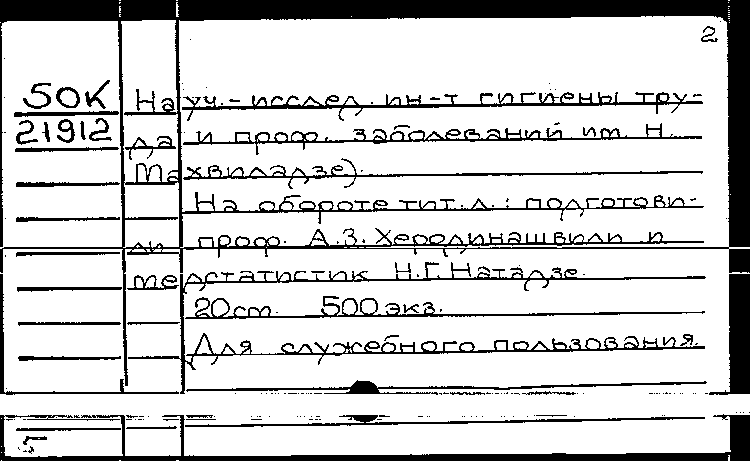 2
50К
21912
Науч.-исслед. ин-т гигиены тру-
да и проф. заболеваний им. Н.
Махвиладзе).
На обороте тит.л.: подготови-
ли проф. А.З. Херодинашвили и
медстатистик Н.Г. Натадзе.
20 ст. 500 экз.
Для служебного пользования.
5